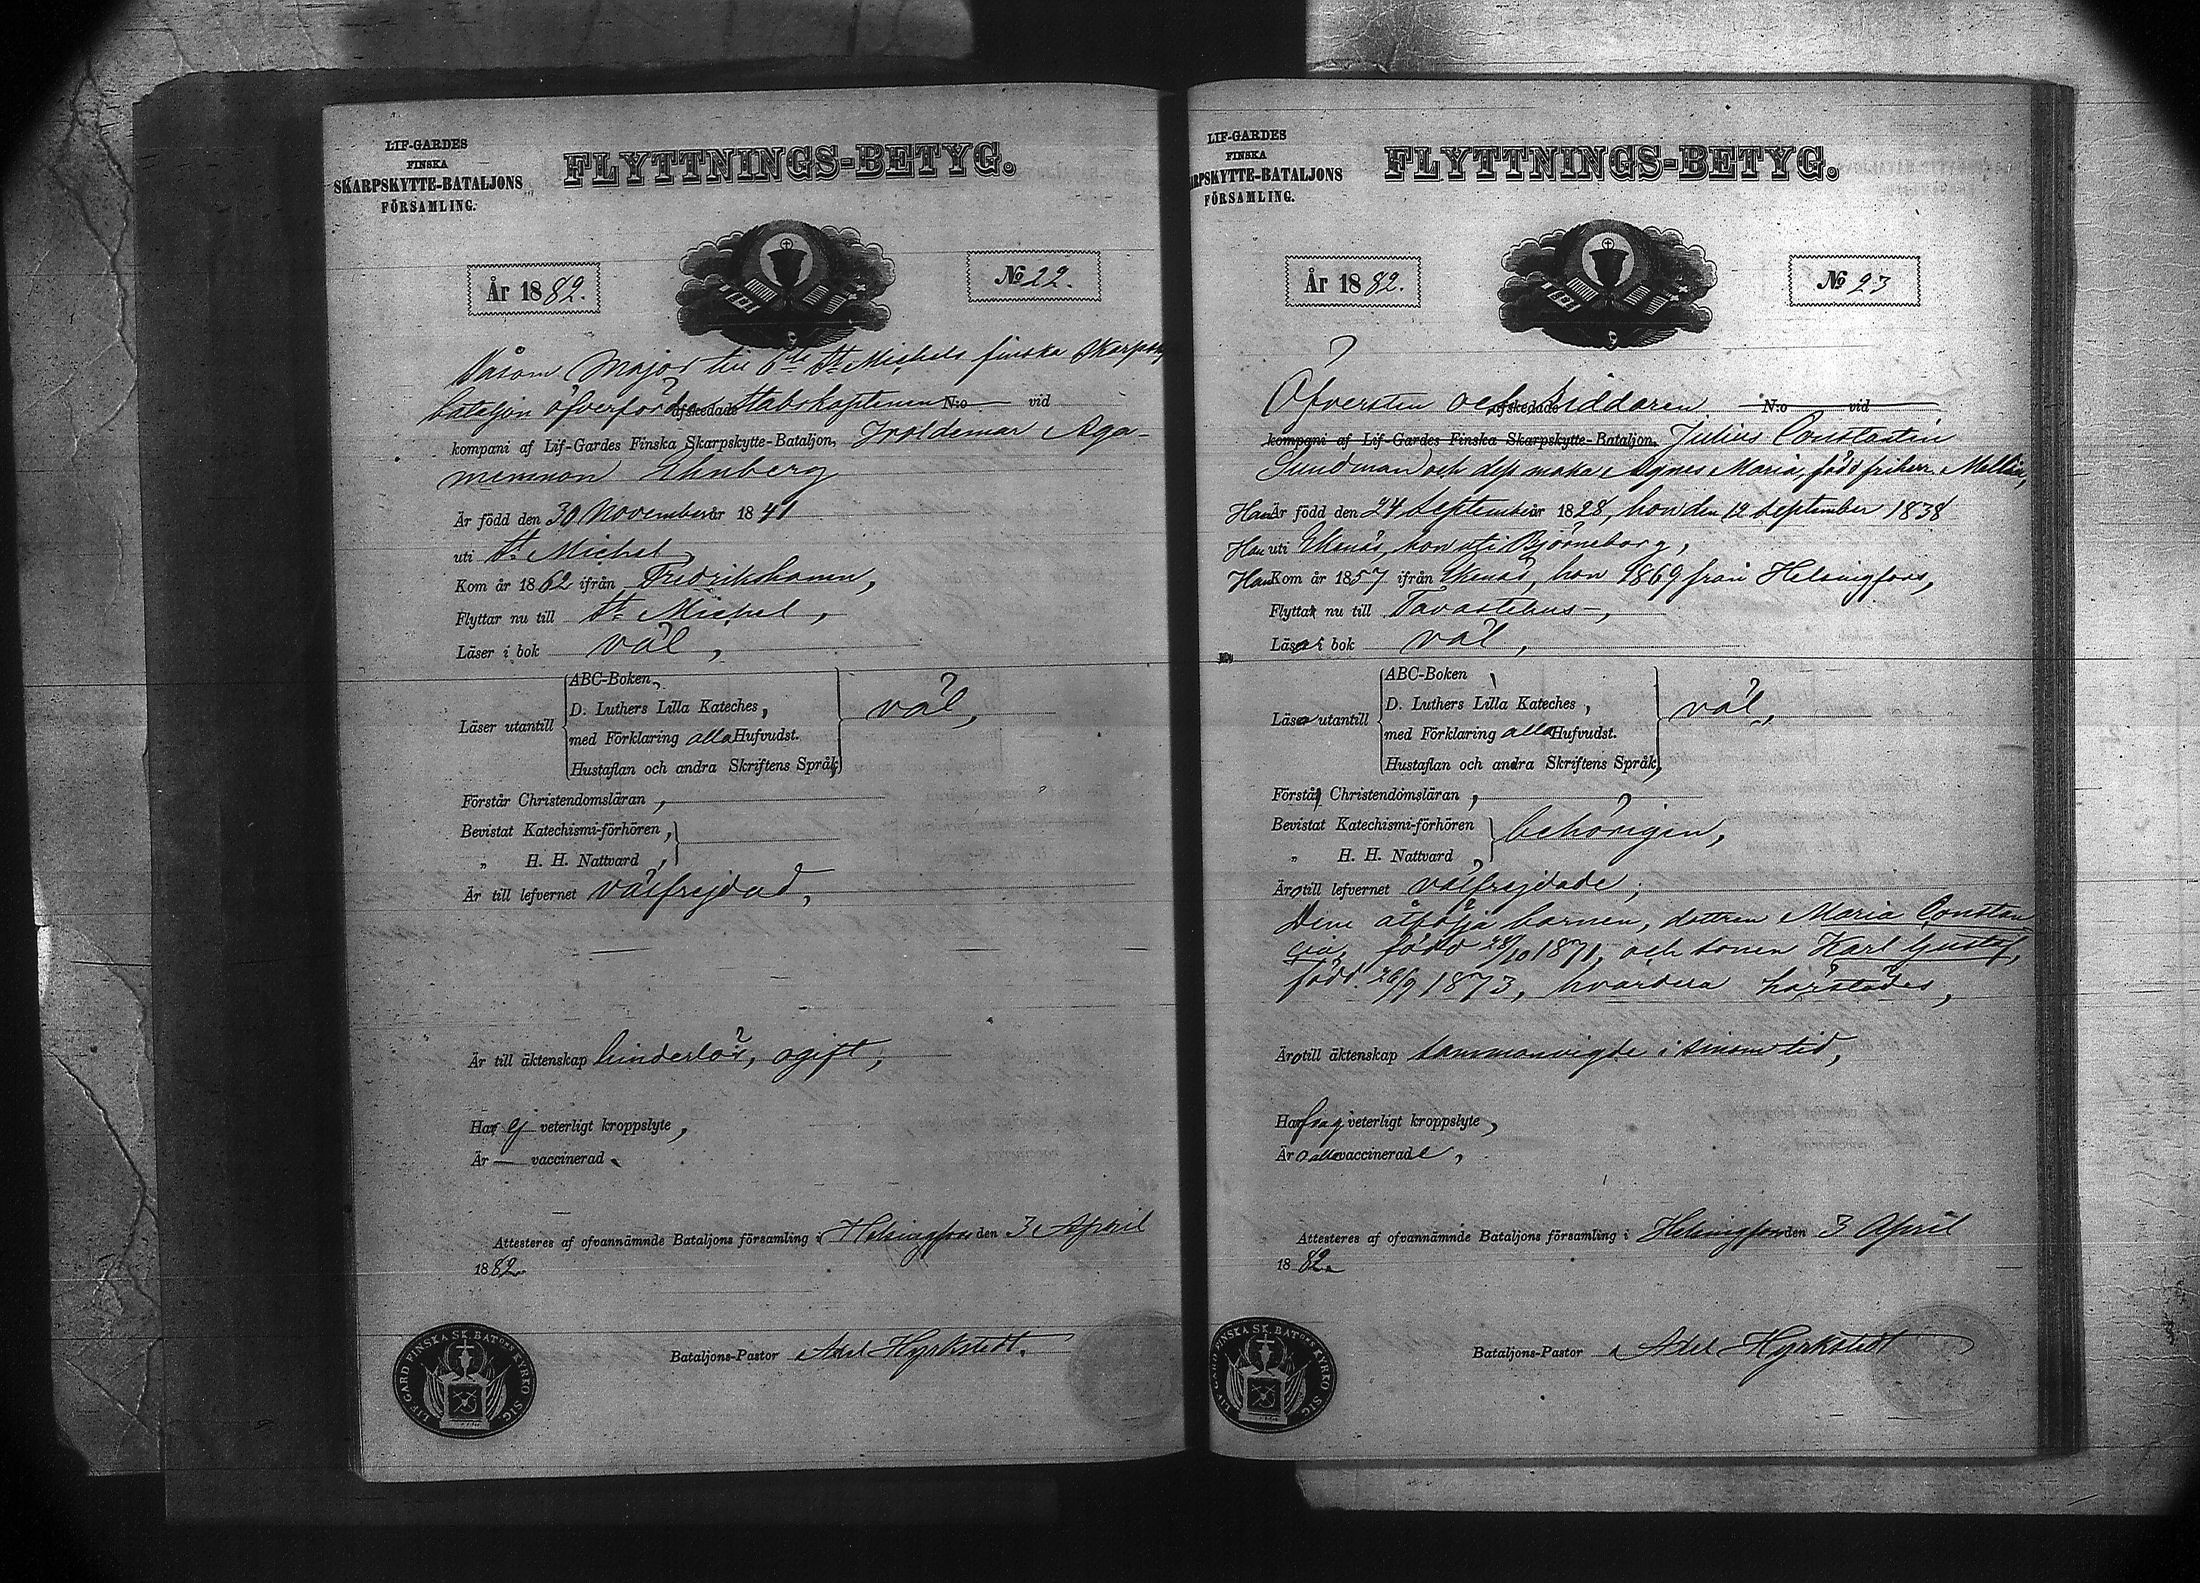 LIF-GARDES
FINSKA
SKARPSKYTTE-BATALJONS
FÖRSAMLING.
FLYTTNINGS-BETYG.
År 1882.
№ 22.
Såsom Major till 6te St Michels finska Skarpsky
bataljon öfverförde afskedade Stabskaptenen N:o vid
kompani af Lif-Gardes Finska Skarpskytte-Bataljon, Woldemar Aga-
memnon Ehnberg
Är född den 30 November år 1841
uti St Michel
Kom år 1862 ifrån Fredrikshamn,
Flyttar nu till St Michel,
Läser i bok väl,
Läser utantill
ABC-Boken,
D. Luthers Lilla Kateches,
med Förklaring alla Hufvudst.
Hustaflan och andra Skriftens Språk,
väl,
Förstår Christendomsläran,
Bevistat Katechismi-förhören,
„ H. H. Nattvard,
Är till lefvernet välfrejdad,
Är till äktenskap hinderlös, ogift,
Har ej veterligt kroppslyte,
Är — vaccinerad
Attesteres af ofvannämnde Bataljons församling i Helsingfors den 3 April
1882.
Bataljons-Pastor Axel Hyrkstedt.
LIF-GARD FINSKA SK. BATONS KYRKO SIG.
LIF-GARDES
FINSKA
RPSKYTTE-BATALJONS
FÖRSAMLING.
FLYTTNINGS-BETYG.
År 1882.
№ 23
Öfversten och afskedade Riddaren N:o vid
kompani af Lif-Gardes Finska Skarpskytte-Bataljon, Julius Constantin
Sundman och dess maka Agnes Maria, född friherr. Mellin,
Han Är född den 24 September år 1828, hon den 12 September 1838
Han uti Ekenäs, hon uti Björneborg,
Han Kom år 1857 ifrån Ekenäs, hon 1869 från Helsingfors,
Flytta nu till Tavastehus,
Läsa i bok väl,
Läsa utantill
ABC-Boken,
D. Luthers Lilla Kateches,
med Förklaring alla Hufvudst.
Hustaflan och andra Skriftens Språk,
väl,
Förstå Christendomsläran,
Bevistat Katechismi-förhören
„ H. H. Nattvard,
behörigen,
Äro till lefvernet välfrejdade;
Dem åtfölja barnen, dottren Maria Constan
cia, född 28/10 1871, och sonen Karl Gustaf,
född 26/9 1873, hvardera härstädes,
Äro till äktenskap sammanvigde i sinom tid,
Ha veterligt kroppslyte,
Äro alla vaccinerade,
Attesteres af ofvannämnde Bataljons församling i Helsingfors den 3 April
1882.
Bataljons-Pastor Axel Hyrkstedt
LIF GARD FINSKA SK. BATONS KYRKO SIG.